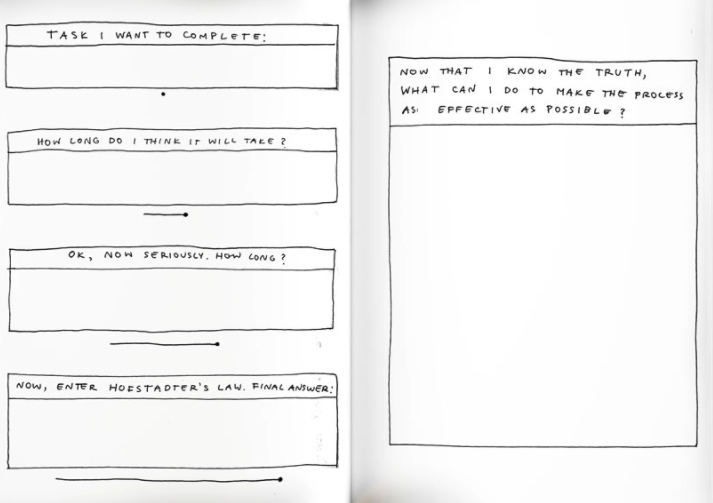 TASK I WANT TO COMPLETE:
HOW LONG DO I THINK IT WILL TAKE?
OK, NOW SERIOUSLY. HOW LONG?
NOW, ENTER HOFSTADTER'S LAW. FINAL ANSWER:
NOW THAT I KNOW THE TRUTH,
WHAT CAN I DO TO MAKE THE PROCESS
AS EFFECTIVE AS POSSIBLE?